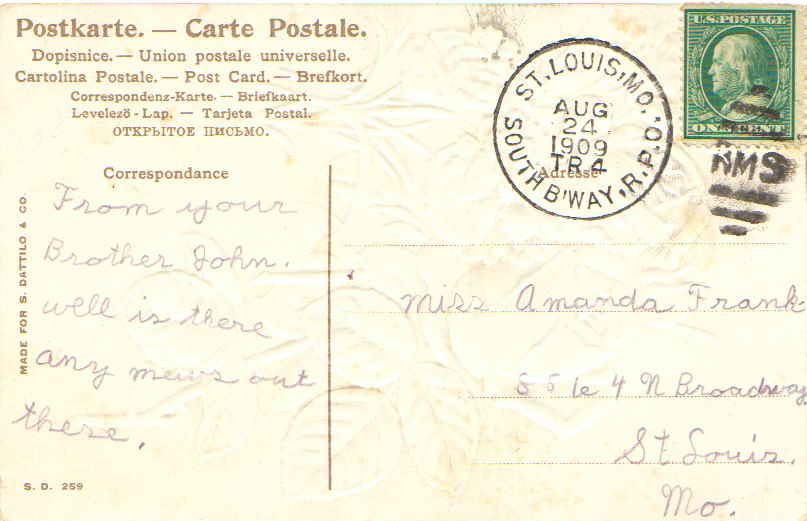 Postkarte. — Carte Postale.
Dopisnice. — Union postale universelle.
Cartolina Postale. — Post Card. — Brefkort.
Correspondenz-Karte. — Briefkaart.
Levelező-Lap. — Tarjeta Postal.
ОТКРЫТОЕ ПИСЬМО.
U.S. POSTAGE
ONE CENT
ST. LOUIS, MO.
AUG
24
1909
TR 4
SOUTH B'WAY, R.P.O.
RMS
Correspondance
Adresse
From your
Brother John.
well is there
any mews out
there.
Miss Amanda Frank
N Broadway
St Louis.
Mo.
MADE FOR S. DATTILO & CO.
S. D. 259